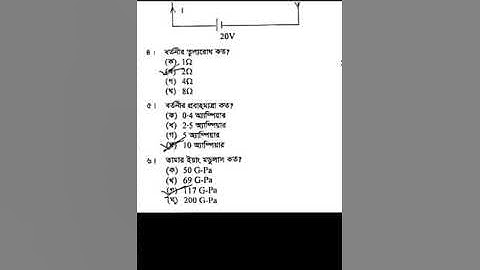 1
20V
৪। বর্তনীর তুল্যরোধ কত?
(ক) 1Ω
(খ) 2Ω
(গ) 4Ω
(ঘ) 8Ω
৫। বর্তনীর প্রবাহমাত্রা কত?
(ক) 0·4 অ্যাম্পিয়ার
(খ) 2·5 অ্যাম্পিয়ার
(গ) 5 অ্যাম্পিয়ার
(ঘ) 10 অ্যাম্পিয়ার
৬। তামার ইয়াং মডুলাস কত?
(ক) 50 G-Pa
(খ) 69 G-Pa
(গ) 117 G-Pa
(ঘ) 200 G-Pa